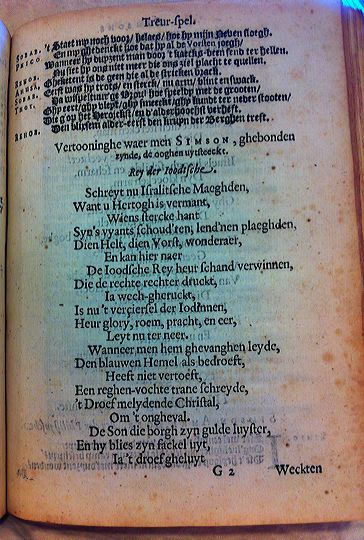 Treur-spel.
SOBAR. 't Staet my noch voor, helaes, hoe hy mijn Neven sloegh.
PHICO. En my ghebonckt hoe dat hy al de Vorsten joegh,
Wanneer hy duysent man door 't kaecks-been send ter hellen.
Nu siet hy ons niet meer die ons viel placht te quellen.
SENOR. Gheketent is de geen die al de stricken brack.
AMASA. Eerst was hy trots, en sterck, nu arm, blint en swack.
SOBAR.
TROI. Ghy eert, ghy slept, ghy smeeckt, ghy kunt ter neder stooten,
Die g'op het Heroickst, en d'alderhoochst verheft,
SENOR. Den blixsem alder-eerst den kruyn der Berghen treft.
Vertooninghe waer men SIMSON, ghebonden
zynde, de ooghen uytsteeckt.
Rey der Ioodische.
Schreyt nu Isralitsche Maeghden,
Want u Hertogh is vermant,
Wiens stercke hant
Syn's vyants schoud'ren, lend'nen plaeghden,
Dien Helt, dien Vorst, wonderaer,
En kan hier naer
De Ioodsche Rey heur schand verwinnen,
Die de rechte rechter druckt,
Ia wech-gheruckt,
Is nu't verçiersel der Iodinnen,
Heur glory, roem, pracht, en eer,
Leyt nu ter neer.
Wanneer men hem ghevanghen leyde,
Den blauwen Hemel als bedroeft,
Heeft niet vertoeft,
Een reghen-vochte trane schreyde,
't Droef melydende Christal,
Om 't ongheval.
De Son die borgh zyn gulde luyster,
En hy blies zyn fackel uyt,
Ia 't droef gheluyt
G 2 Weckten